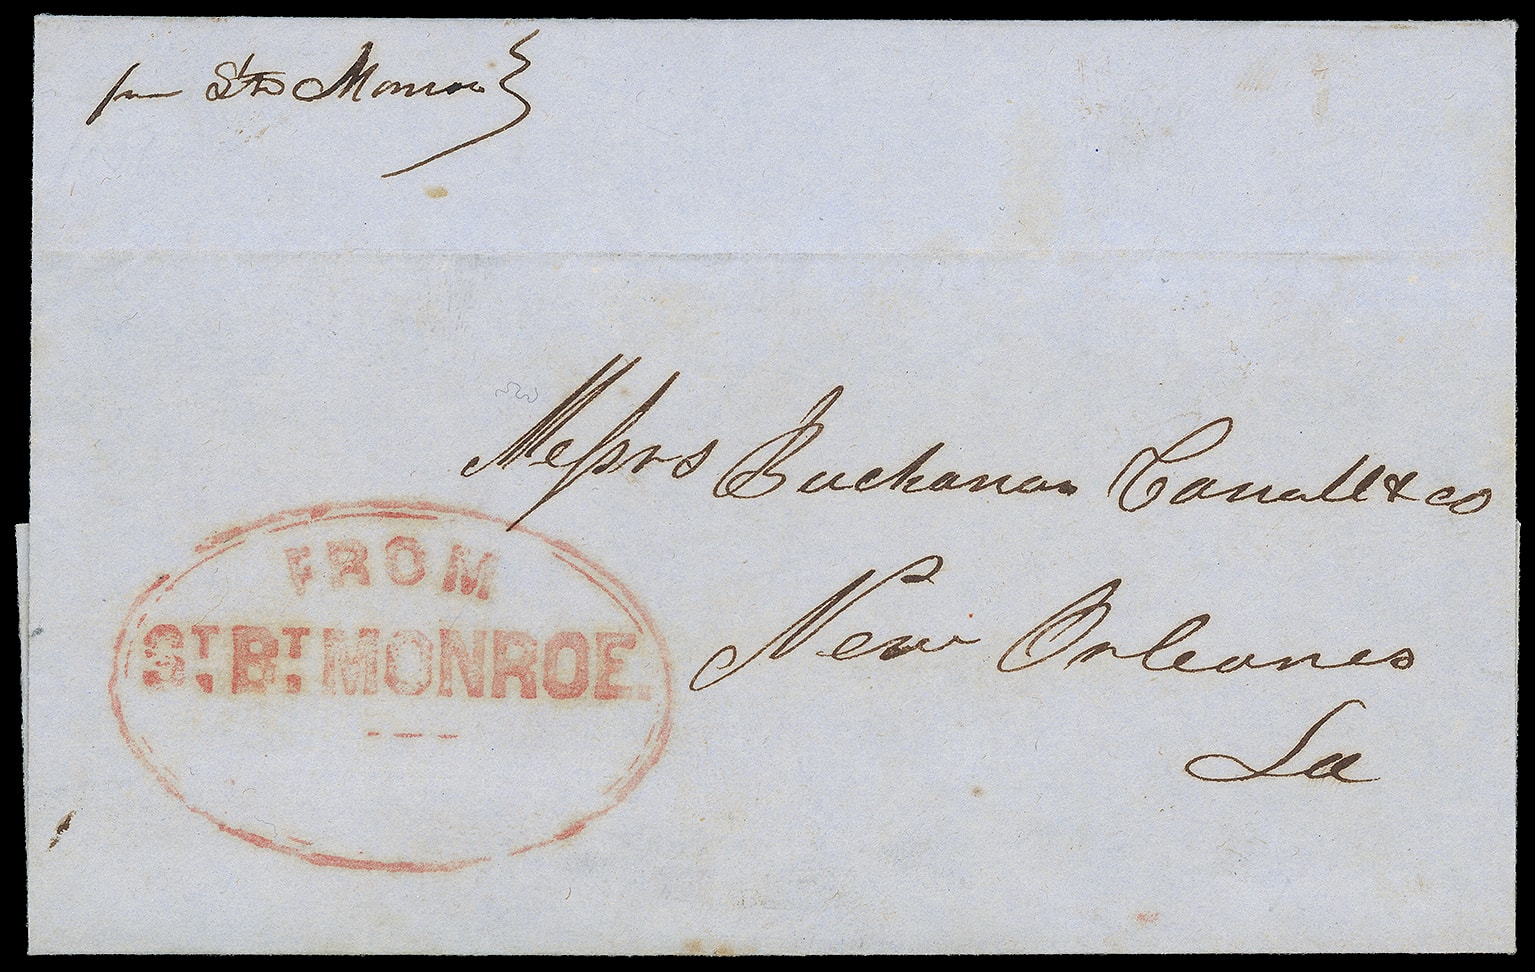 per Stb Monroe
Messrs Buchanan Carroll & co
New Orleans
La
FROM
ST. BT. MONROE.